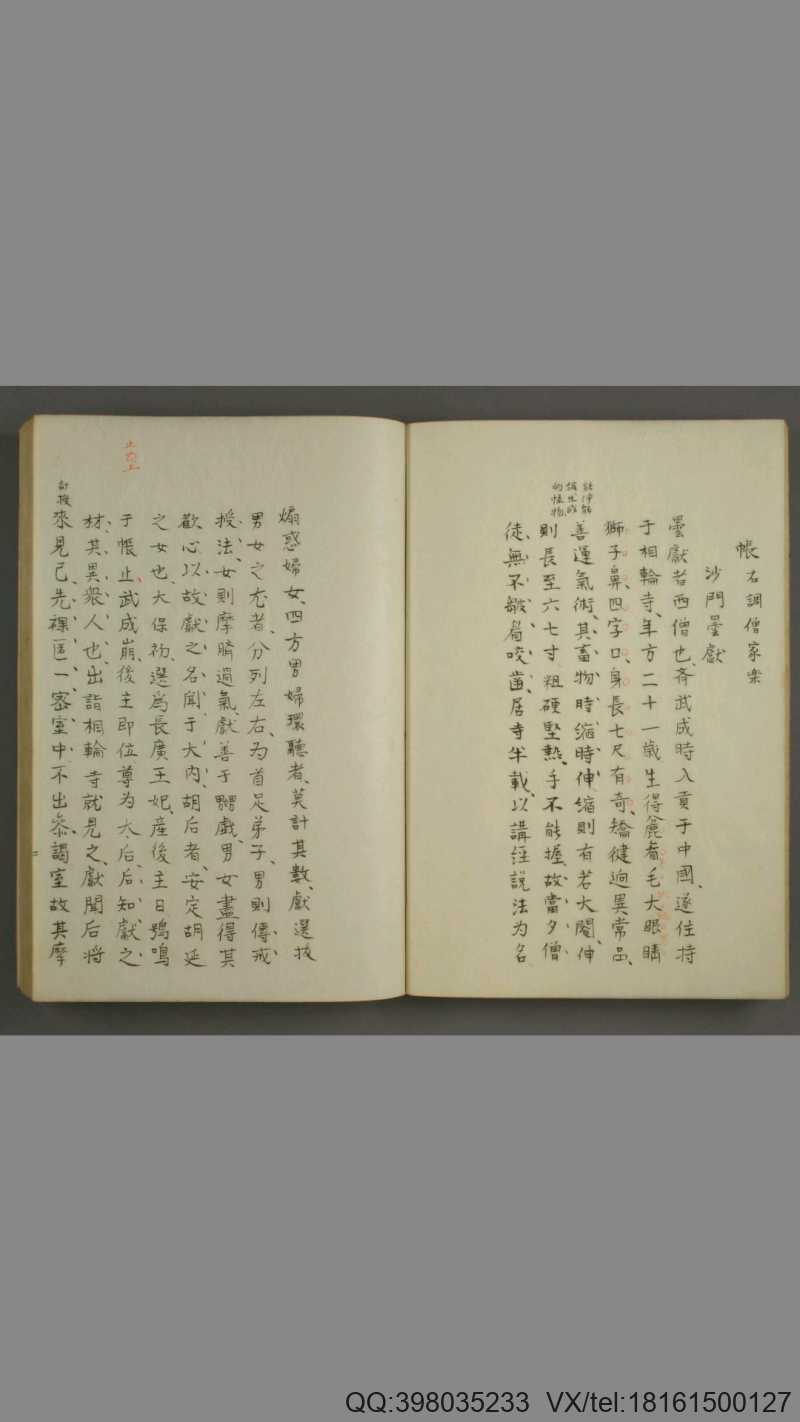 帳右調僧家楽
沙門曇獻
曇獻者西僧也、斉武成時入貢于中國、遂住持
于相輪寺、年方二十一歳生得麁眉毛大眼睛
獅子鼻、四字口、身長七尺有奇、矯健逈異常品、
善運氣術、其畜物時縮時伸縮則有若大閹、伸
則長至六七寸粗硬堅熱、手不能握、故當夕僧
徒、無不皺眉咬齒、居寺半載、以講經説法为名
煽惑婦女、四方男婦環聽者、莫計其數、獻選拔
男女之尤者、分列左右、为首足弟子、男則傳戒
授法、女則摩臍過氣、獻善于嬲戲、男女盡得其
歡心、以故獻之名聞于大内、胡后者、安定胡延
之女也、大保初、選爲長廣王妃、産後主日鴞鳴
于帳止、武成崩、後主即位尊为太后、后知獻之
材、其異衆人也、出詣相輪寺就見之、獻聞后将
來見己、先裸匿一密室中不出叅謁室故其摩
QQ:398035233 VX/tel:18161500127